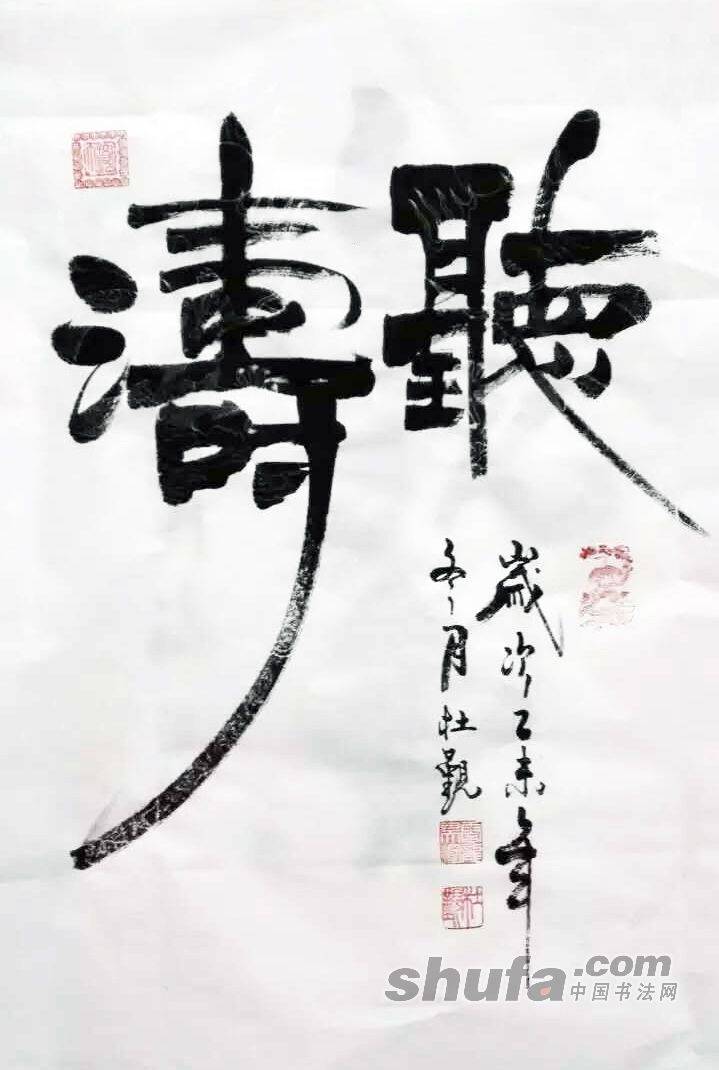 聽濤
歲次乙未年
冬月杜觀
shufa.com
中国书法网